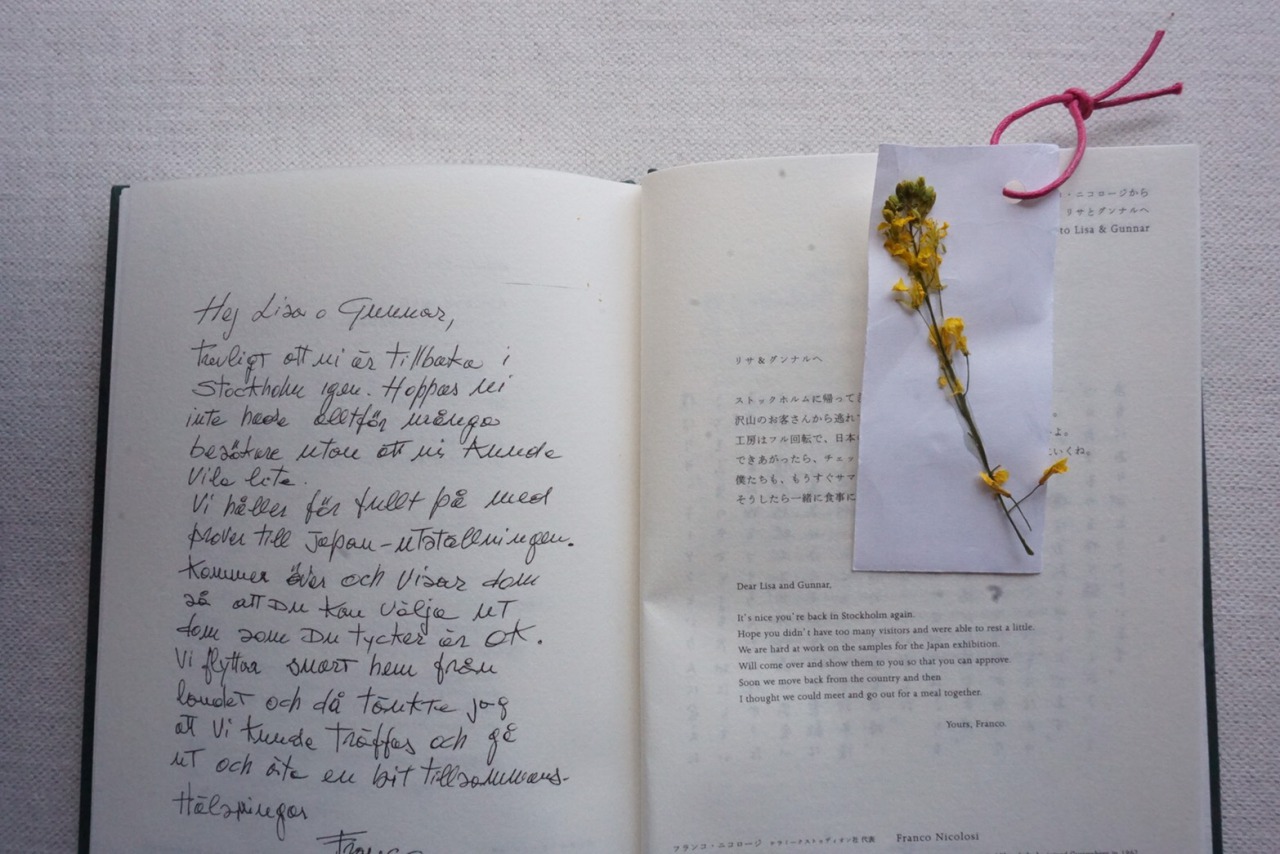 Hej Lisa o Gunnar,
trevligt att ni är tillbaka i
Stockholm igen. Hoppas ni
inte hade alltför många
besökare utan att ni kunde
vila lite.
Vi håller för fullt på med
prover till Japan-utställningen.
Kommer över och visar dom
så att Du kan välja ut
dom som Du tycker är OK.
Vi flyttar snart hem från
landet och då tänkte jag
att vi kunde träffas och gå
ut och äta en bit tillsammans-
Hälsningar
Franco
・ニコロージから
リサとグンナルへ
to Lisa & Gunnar
リサ&グンナルへ
ストックホルムに帰って
沢山のお客さんから逃れ
工房はフル回転で、日本
よ。
できあがったら、チェッ
いくね。
僕たちも、もうすぐサマ
そうしたら一緒に食事に
Dear Lisa and Gunnar,
It's nice you're back in Stockholm again.
Hope you didn't have too many visitors and were able to rest a little.
We are hard at work on the samples for the Japan exhibition.
Will come over and show them to you so that you can approve.
Soon we move back from the country and then
I thought we could meet and go out for a meal together.
Yours, Franco.
フランコ・ニコロージ 代表 Franco Nicolosi